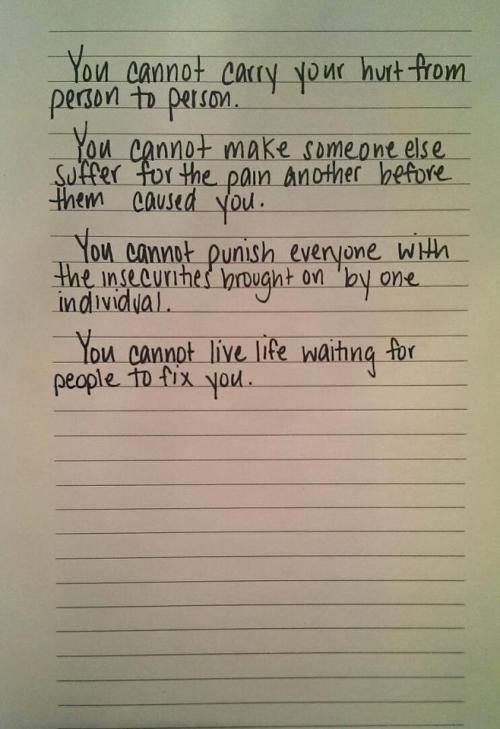 You cannot carry your hurt from
person to person.
You cannot make someone else
suffer for the pain another before
them caused you.
You cannot punish everyone with
the insecurities brought on by one
individual.
You cannot live life waiting for
people to fix you.